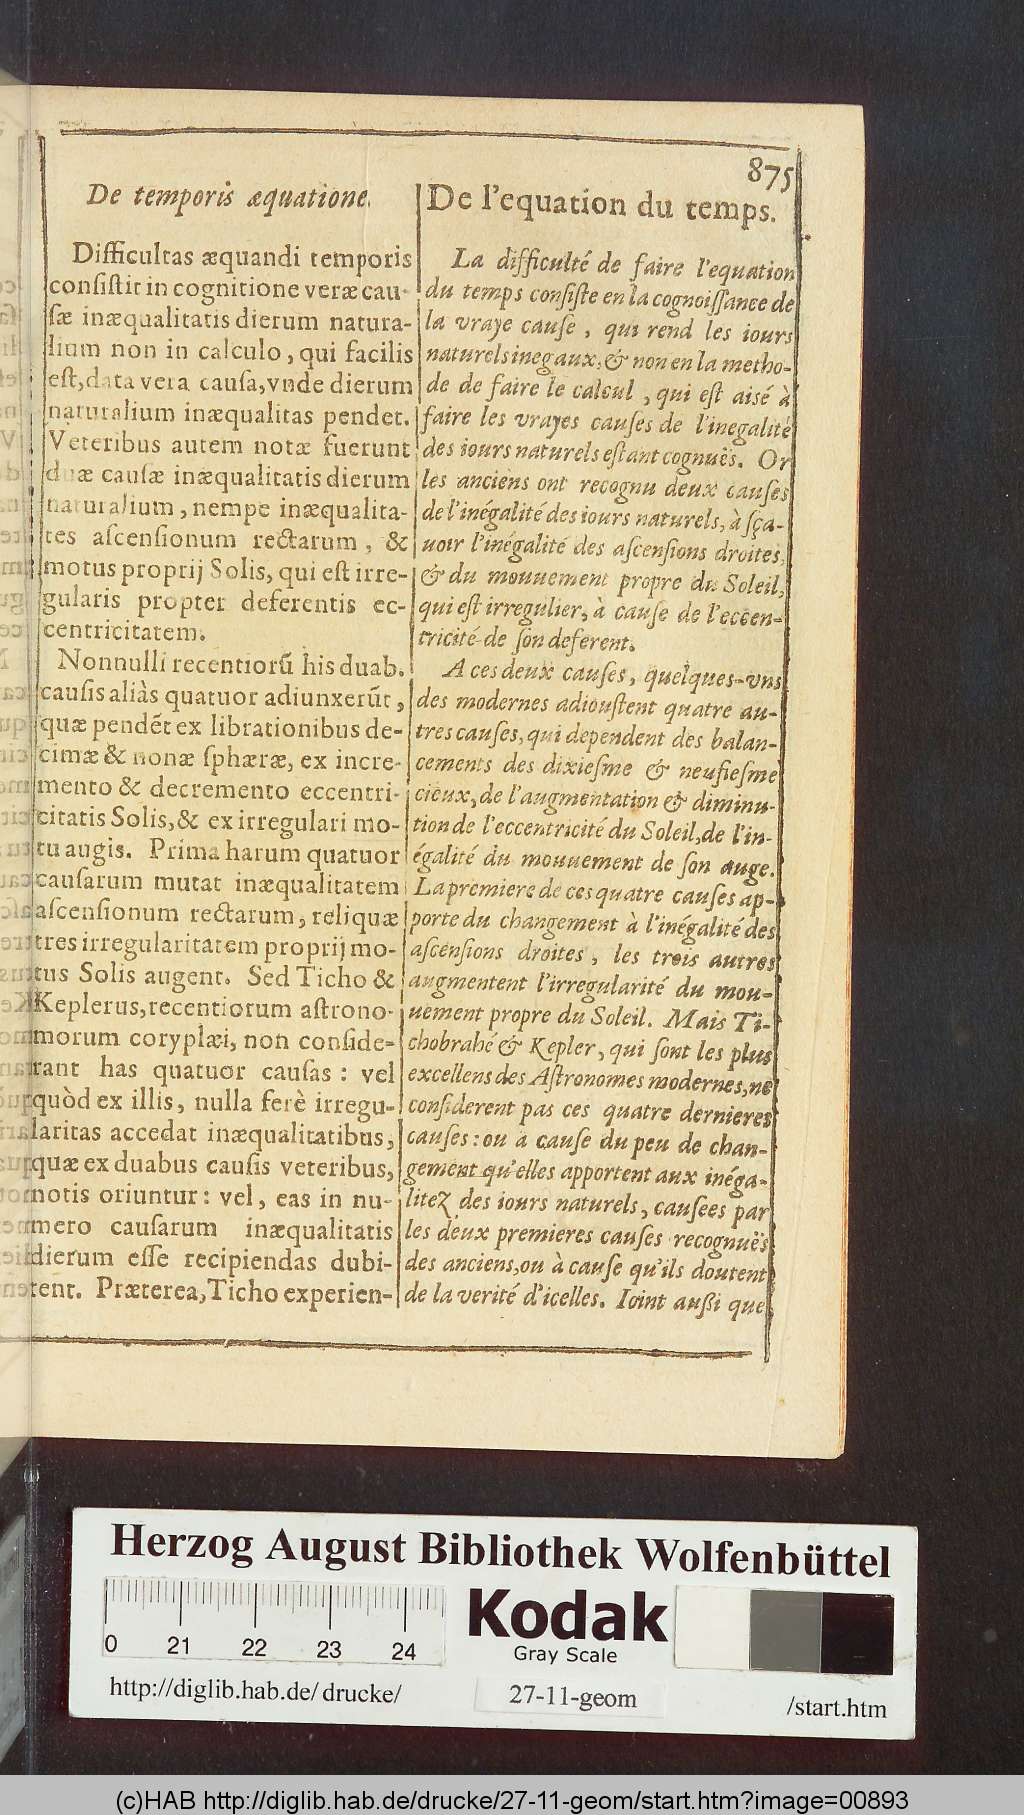 875
De temporis æquatione.
Difficultas æquandi temporis
consistit in cognitione veræ cau-
sæ inæqualitatis dierum natura-
lium non in calculo, qui facilis
est, data vera causa, vnde dierum
naturalium inæqualitas pendet.
Veteribus autem notæ fuerunt
duæ causæ inæqualitatis dierum
naturalium, nempe inæqualita-
tes ascensionum rectarum, &
motus proprij Solis, qui est irre-
gularis propter deferentis ec-
centricitatem.
Nonnulli recentiorũ his duab.
causis aliàs quatuor adiunxerũt,
quæ pendẽt ex librationibus de-
cimæ & nonæ sphæræ, ex incre-
mento & decremento eccentri-
citatis Solis, & ex irregulari mo-
tu augis. Prima harum quatuor
causarum mutat inæqualitatem
ascensionum rectarum, reliquæ
tres irregularitatem proprij mo-
tus Solis augent. Sed Ticho &
Keplerus, recentiorum astrono-
morum coryplæi, non conside-
rant has quatuor causas: vel
quòd ex illis, nulla ferè irregu-
laritas accedat inæqualitatibus,
quæ ex duabus causis veteribus,
notis oriuntur: vel, eas in nu-
mero causarum inæqualitatis
dierum esse recipiendas dubi-
tent. Præterea, Ticho experien-
De l'equation du temps.
La difficulté de faire l'equation
du temps consiste en la cognoissance de
la vraye cause, qui rend les iours
naturels inegaux, & non en la metho-
de de faire le calcul, qui est aisé à
faire les vrayes causes de l'inegalité
des iours naturels estant cognuës. Or
les anciens ont recognu deux causes
de l'inégalité des iours naturels, à sça-
uoir l'inégalité des ascensions droites,
& du mouuement propre du Soleil,
qui est irregulier, à cause de l'eccen-
tricité de son deferent.
A ces deux causes, quelques-vns
des modernes adioustent quatre au-
tres causes, qui dependent des balan-
cements des dixiesme & neufiesme
cieux, de l'augmentation & diminu-
tion de l'eccentricité du Soleil, de l'in-
égalité du mouuement de son auge.
La premiere de ces quatre causes ap-
porte du changement à l'inégalité des
ascensions droites, les trois autres
augmentent l'irregularité du mou-
uement propre du Soleil. Mais Ti-
chobrahé & Kepler, qui sont les plus
excellens des Astronomes modernes, ne
considerent pas ces quatre dernieres
causes: ou à cause du peu de chan-
gement qu'elles apportent aux inéga-
litez des iours naturels, causees par
les deux premieres causes recognuës
des anciens, ou à cause qu'ils doutent
de la verité d'icelles. Ioint aussi que
Herzog August Bibliothek Wolfenbüttel
0 21 22 23 24
Kodak
Gray Scale
http://diglib.hab.de/drucke/ 27-11-geom /start.htm
(c)HAB http://diglib.hab.de/drucke/27-11-geom/start.htm?image=00893